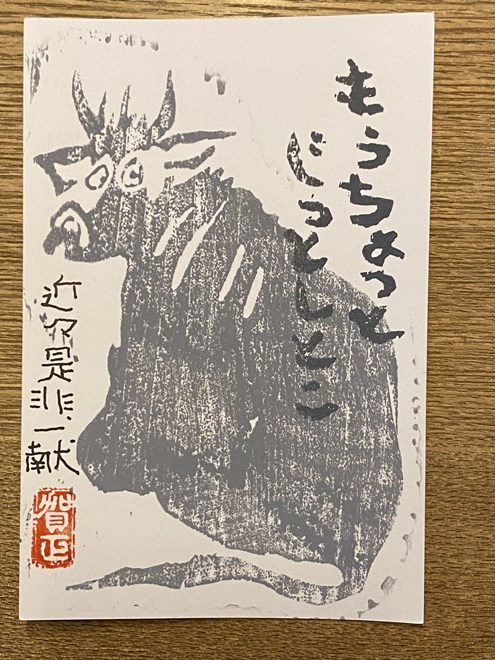 もうちょっと
じっとしとこ
近々是非一献
賀正